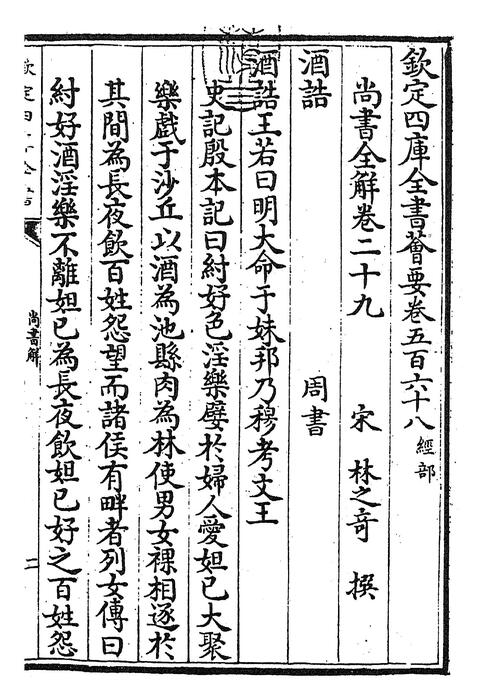 欽定四庫全書薈要卷五百六十八經部
尚書全解卷二十九 宋 林之奇 撰
酒誥 周書
酒誥王若曰明大命于妹邦乃穆考文王
史記殷本記曰紂好色淫樂嬖於婦人愛妲己大聚
樂戲于沙丘以酒為池縣肉為林使男女裸相逐於
其間為長夜飲百姓怨望而諸侯有畔者列女傳曰
紂好酒淫樂不離妲己為長夜飲妲己好之百姓怨
尚書解